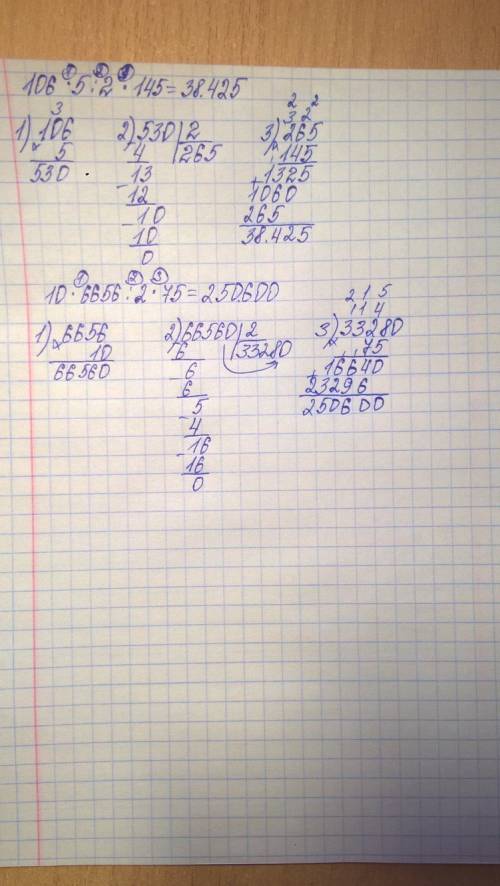 106 · 5 : 2 · 145 = 38.425
① ② ③
3
1) 106
× 5
530
2) 530 | 2
4 265
- 13
12
- 10
10
0
2 2
3 2
3) 265
× 145
+ 1325
1060
265
38.425
10 · 6656 : 2 · 75 = 250.600
① ② ③
1) 6656
× 10
66560
2) 66560 | 2
6 33280
- 6
6
- 5
4
- 16
16
0
2 1 5
1 1 4
3) 33280
× 75
+ 16640
23296
250600